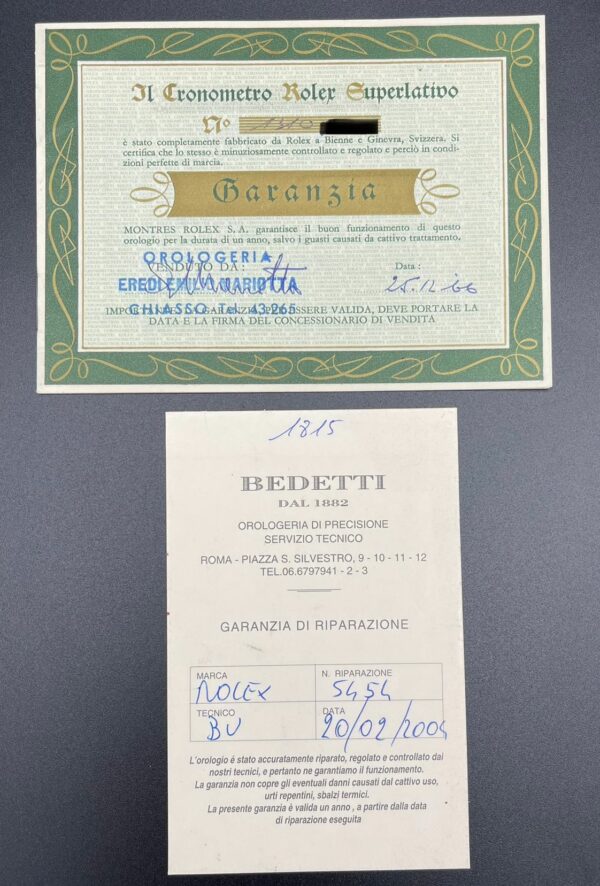 Il Cronometro Rolex Superlativo
No 1310
è stato completamente fabbricato da Rolex a Bienne e Ginevra, Svizzera. Si
certifica che lo stesso è minuziosamente controllato e regolato e perciò in condi-
zioni perfette di marcia.
Garanzia
MONTRES ROLEX S.A. garantisce il buon funzionamento di questo
orologio per la durata di un anno, salvo i guasti causati da cattivo trattamento.
OROLOGERIA
VENDUTO DA:
Data:
EREDI EMILIO MARIOTTA
25.12.66
CHIASSO Tel. 43.265
IMPORTANTE: LA GARANZIA, PER ESSERE VALIDA, DEVE PORTARE LA
DATA E LA FIRMA DEL CONCESSIONARIO DI VENDITA
1815
BEDETTI
DAL 1882
OROLOGERIA DI PRECISIONE
SERVIZIO TECNICO
ROMA - PIAZZA S. SILVESTRO, 9 - 10 - 11 - 12
TEL.06.6797941 - 2 - 3
GARANZIA DI RIPARAZIONE
MARCA
N. RIPARAZIONE
ROLEX
5454
TECNICO
DATA
BU
20/02/2004
L'orologio è stato accuratamente riparato, regolato e controllato dai
nostri tecnici, e pertanto ne garantiamo il funzionamento.
La garanzia non copre gli eventuali danni causati dal cattivo uso,
urti repentini, sbalzi termici.
La presente garanzia è valida un anno, a partire dalla data
di riparazione eseguita